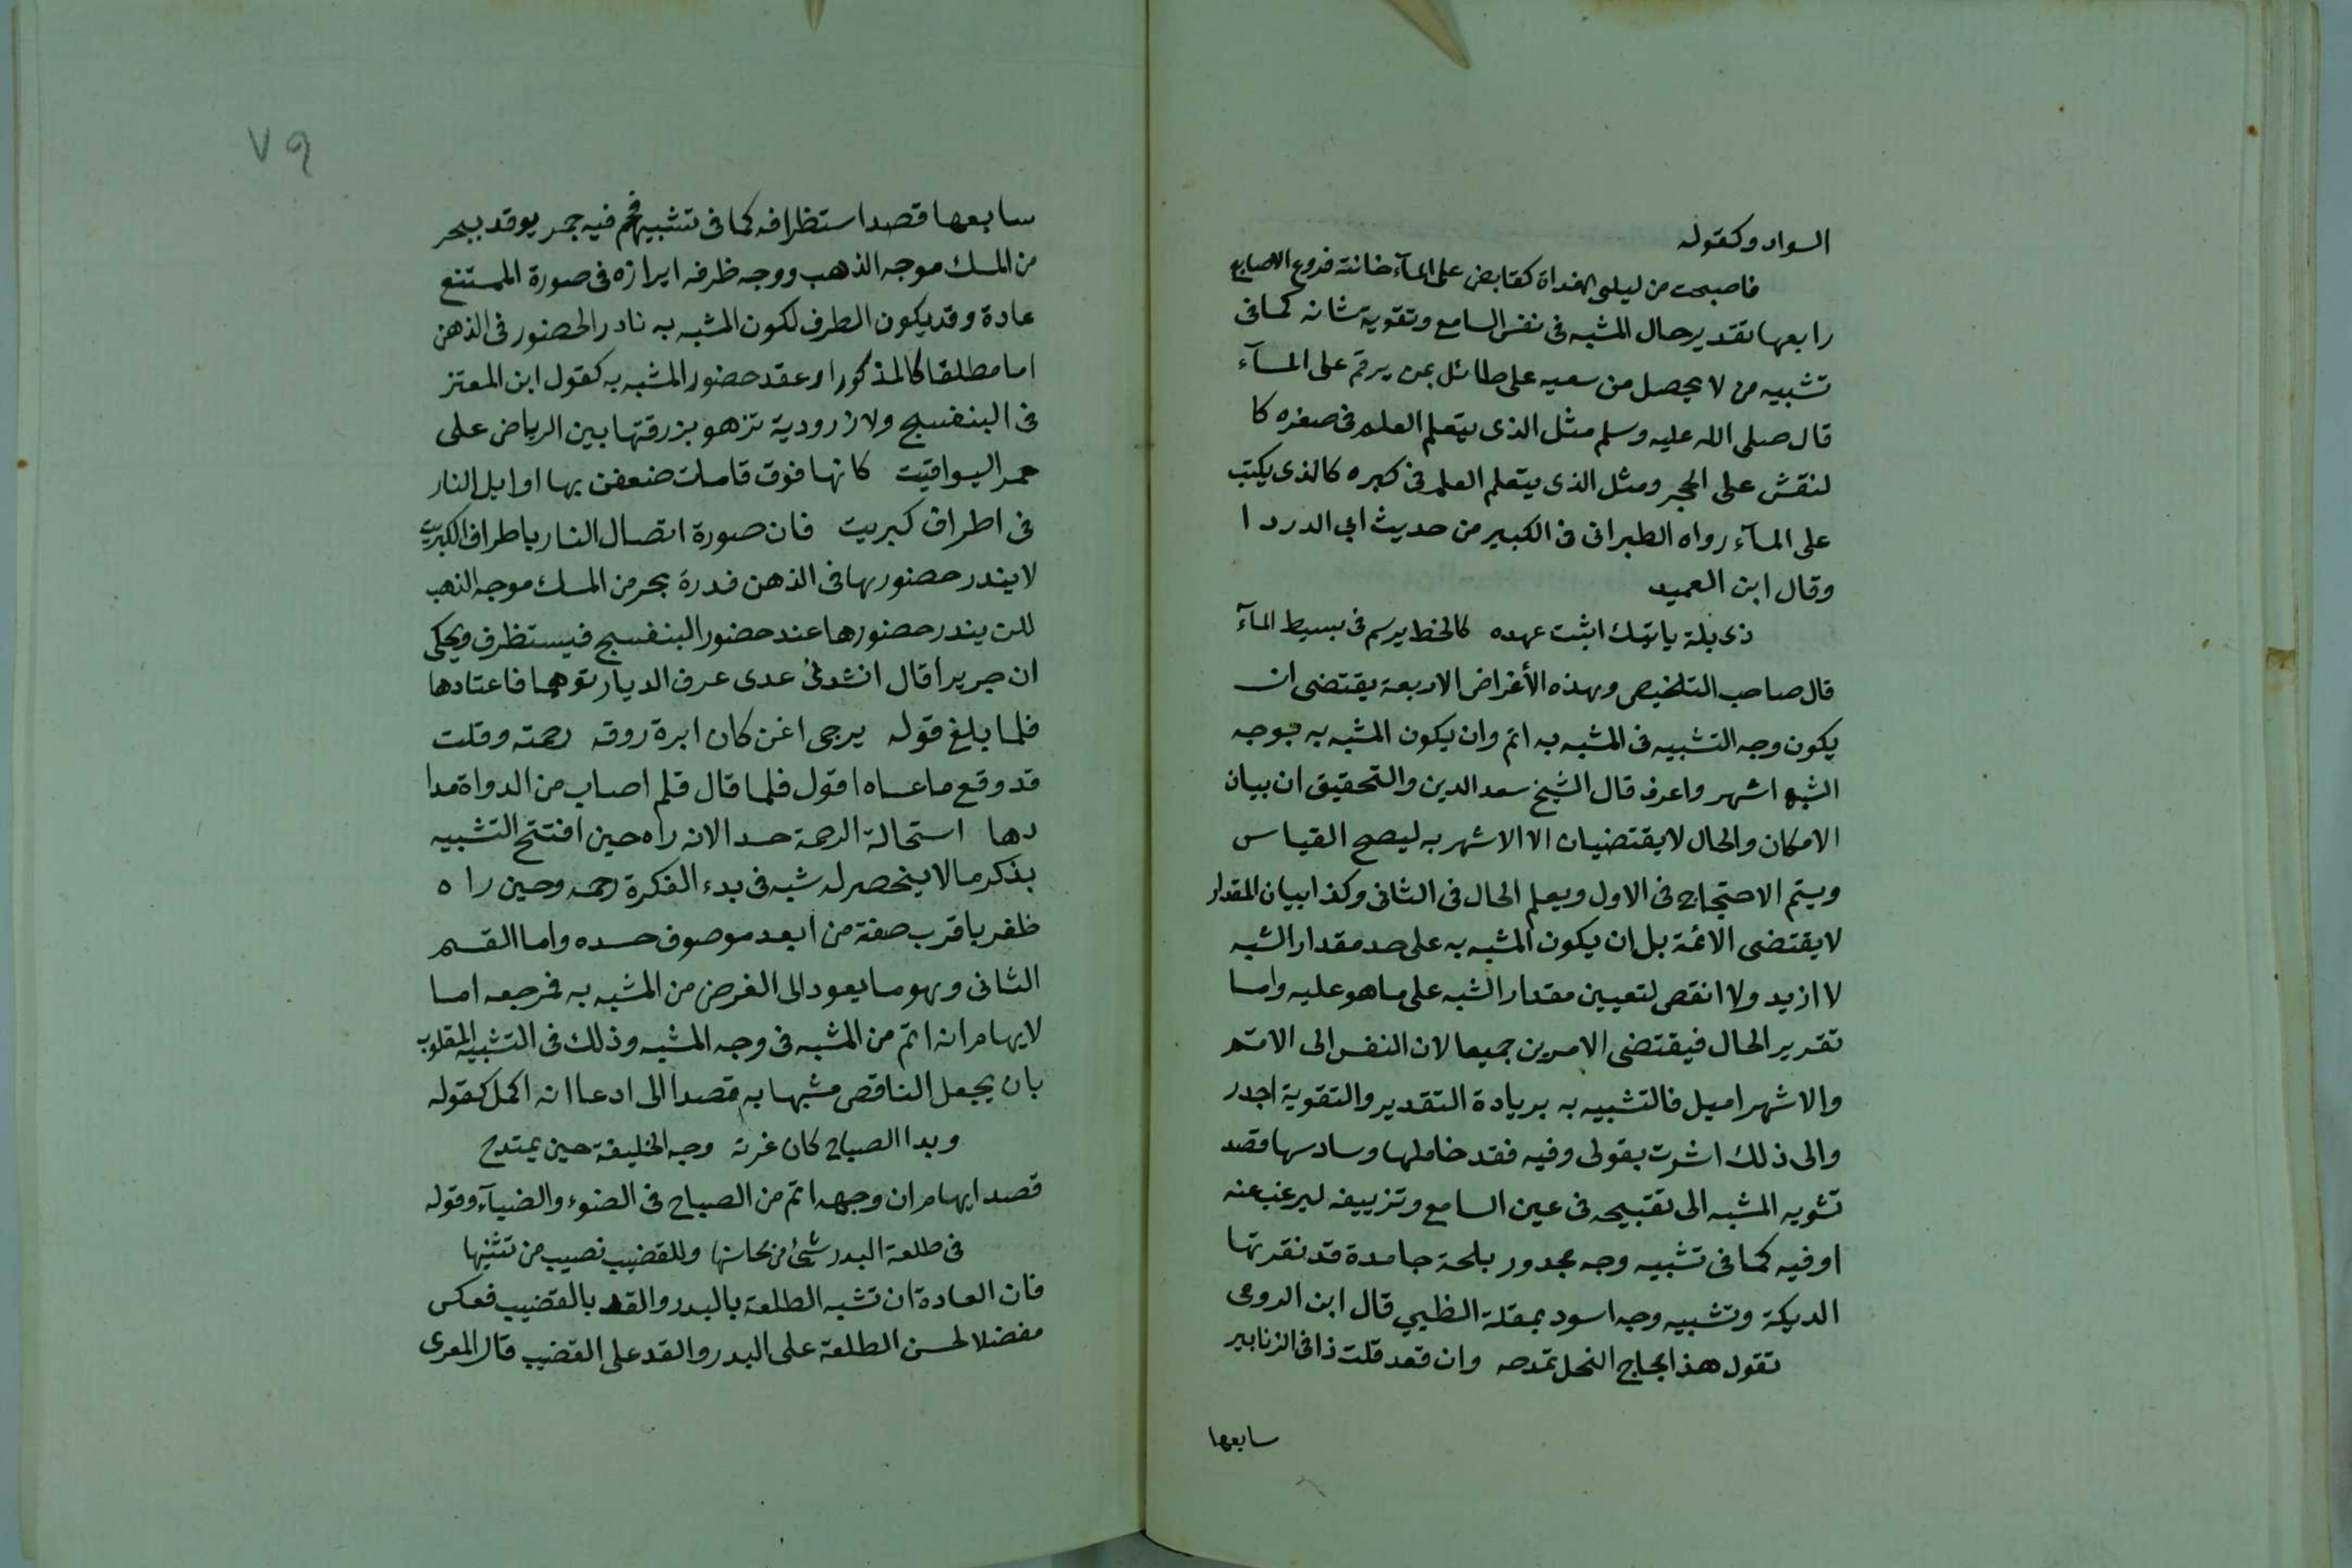 السواد وكقوله
فاصبحت من ليلى الغداة كقابض على المآء خانته فروع الاصابع
رابعها تقدير حال المشبه فى نفس السامع وتقوية شانه كما فى
تشبيه من لا يحصل من سعيه على طائل بمن يرقم على المآء
قال صلى الله عليه وسلم مثل الذى يتعلم العلم فى صغره كا
لنقش على الحجر ومثل الذى يتعلم العلم فى كبره كالذى يكتب
على المآء رواه الطبرانى فى الكبير من حديث ابي الدردا
وقال ابن العميد
ذى يلة ياتيك اثبت عهده كالخط يرسم فى بسيط المآء
قال صاحب التلخيص وهذه الأغراض الاربعة يقتضى ان
يكون وجه التشبيه فى المشبه به اتم وان يكون المشبه به بوجه
الشبه اشهر واعرف قال الشيخ سعد الدين والتحقيق ان بيان
الامكان والحال لا يقتضيان الا الاشهر به ليصح القياس
ويتم الاحتجاج فى الاول ويعلم الحال فى الثانى وكذا بيان المقدار
لا يقتضى الاتمة بل ان يكون المشبه به على حد مقدار الشبه
لا ازيد ولا انقص لتعيين مقدار الشبه على ما هو عليه واما
تقرير الحال فيقتضى الامرين جميعا لان النفس الى الاتم
والاشهر اميل فالتشبيه به بريادة التقدير والتقوية اجدر
والى ذلك اشرت بقولى وفيه فقد خاملها وسادسها قصد
تشويه المشبه الى تقبيحه فى عين السامع وتزييفه ليرغب عنه
او فيه كما فى تشبيه وجه مجدور بلحة جامدة قد نقرتها
الديكة وتشبيه وجه اسود بمقلة الظبي قال ابن الرومى
تقول هذا مجاج النحل تمدحه وان تعد قلت ذا فى الزنابير
سابعها
٧٩
سابعها قصد استظرافه كما فى تشبيه فحم فيه جمر يوقد ببحر
من المسك موجه الذهب ووجه ظرفه ابرازه فى صورة الممتنع
عادة وقد يكون الطرف لكون المشبه به نادر الحضور فى الذهن
اما مطلقا كالمذكور او عقد حضور المشبه به كقول ابن المعتز
فى البنفسج ولازرودية تزهو بزرقتها بين الرياض على
حمر اليواقيت كانها فوق قامات ضعفن بها اوايل النار
فى اطراف كبريت فان صورة اتصال النار باطراف الكبريت
لا يندر حضورها فى الذهن ندرة بحر من المسك موجه الذهب
للن يندر حضورها عند حضور البنفسج فيستظرف ويحكى
ان جريرا قال انشدنى عدى عرف الديار توهما فاعتادها
فلما بلغ قوله يرجى اغن كان ابرة روقه رحمته وقلت
قد وقع ما عساه اقول فلما قال قلم اصاب من الدواة مدا
دها استحالة الرحمة حسدا لانه راه حين افتتح التشبيه
بذكر مالا ينحصر له شبه فى بدء الفكرة رحمه وحين راه
ظفر باقرب صفة من ابعد موصوف حسده واما القسم
الثانى وهو ما يعود الى الغرض من المشبه به فمرجعه اما
لايهام انه اتم من المشبه فى وجه المشبه وذلك فى التشبيه المقلوب
بان يجعل الناقص مشبها به قصدا الى ادعا انه اكمل كقوله
وبدا الصباح كان غرته وجه الخليفة حين يمتدح
قصد ايهام ان وجهه اتم من الصباح فى الضوء والضيآء وقوله
فى طلعة البدر شئ من محاسنها وللقضيب نصيب من تثنيها
فان العادة ان تشبه الطلعة بالبدر والقد بالقضيب فعكس
مفضلا لحسن الطلعة على البدر والقد على القضيب قال المعرى